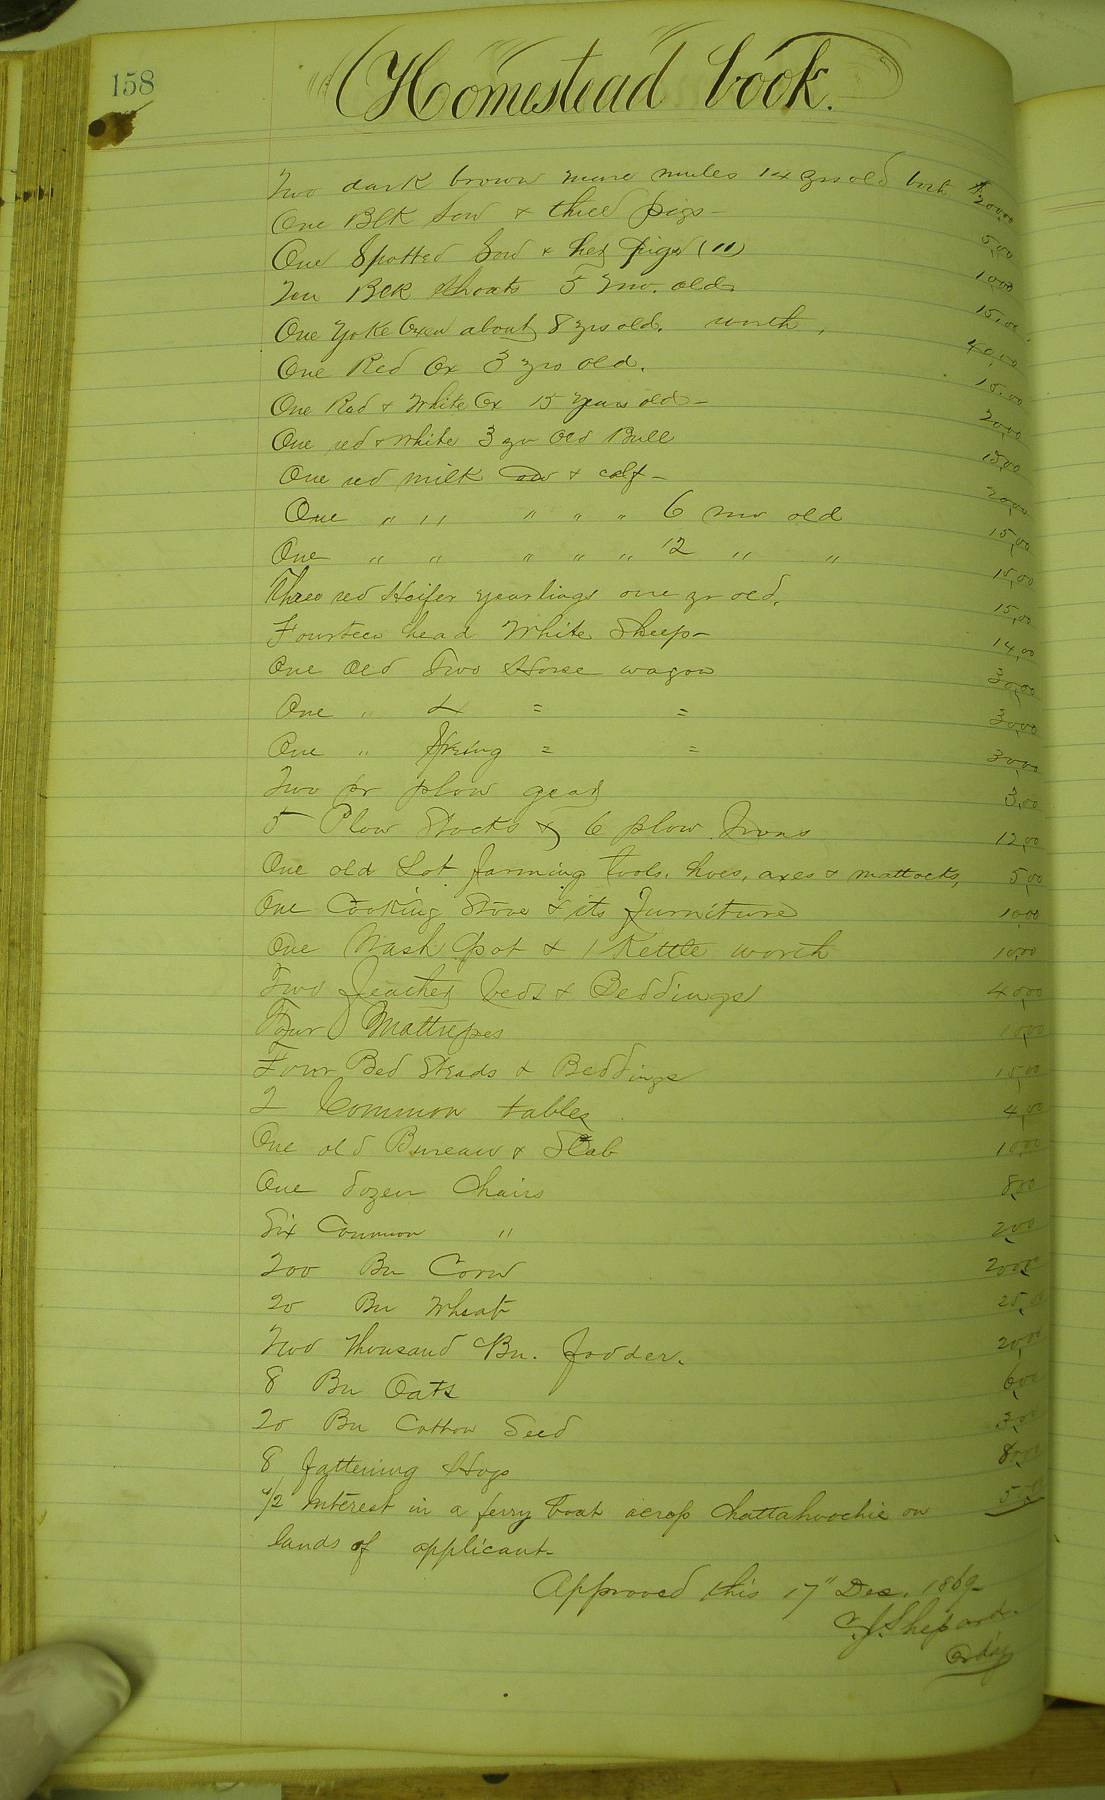 158
Homestead book.
Two dark brown mare mules 14 yrs old worth $200,00
One Blk Sow & three pigs - 5,00
One Spotted Sow & her pigs (11) 10,00
Ten Blk Shoats 5 mo. old 15,00
One Yoke Oxen about 8 yrs old. worth, 40,00
One Red Ox 3 yrs old. 15,00
One Red & White Ox 15 years old - 20,00
One red & white 3 yr old Bull 15,00
One red milk cow & calf - 20,00
One " " " " " 6 mo old 15,00
One " " " " " 12 " " 15,00
Three red Heifer yearlings one yr old. 15,00
Fourteen head White Sheep - 14,00
One Old Two Horse wagon 30,00
One " = = 30,00
One " Spring = = 30,00
Two pr plow gear 3,00
5 Plow Stocks & 6 plow Irons 12,00
One old Lot farming tools. hoes, axes & mattocks, 5,00
One Cooking Stove & its furniture 10,00
One Wash Pot & 1 Kettle worth 10,00
Two feather beds & Beddings 40,00
Four Mattresses 10,00
Four Bed Steads & Beddings 15,00
2 Common tables 4,00
One old Bureau & Slab 10,00
One dozen Chairs 8,00
Six Common " 2,00
200 Bu Corn
20 Bu Wheat 25,00
Two thousand Bn. fodder. 20,00
8 Bu Oats 6,00
20 Bu Cotton Seed 3,00
8 fattening Hogs
1/2 Interest in a ferry boat across Chattahoochie on
lands of applicant -
Approved this 17" Dec. 1869
Shepard
Ordy